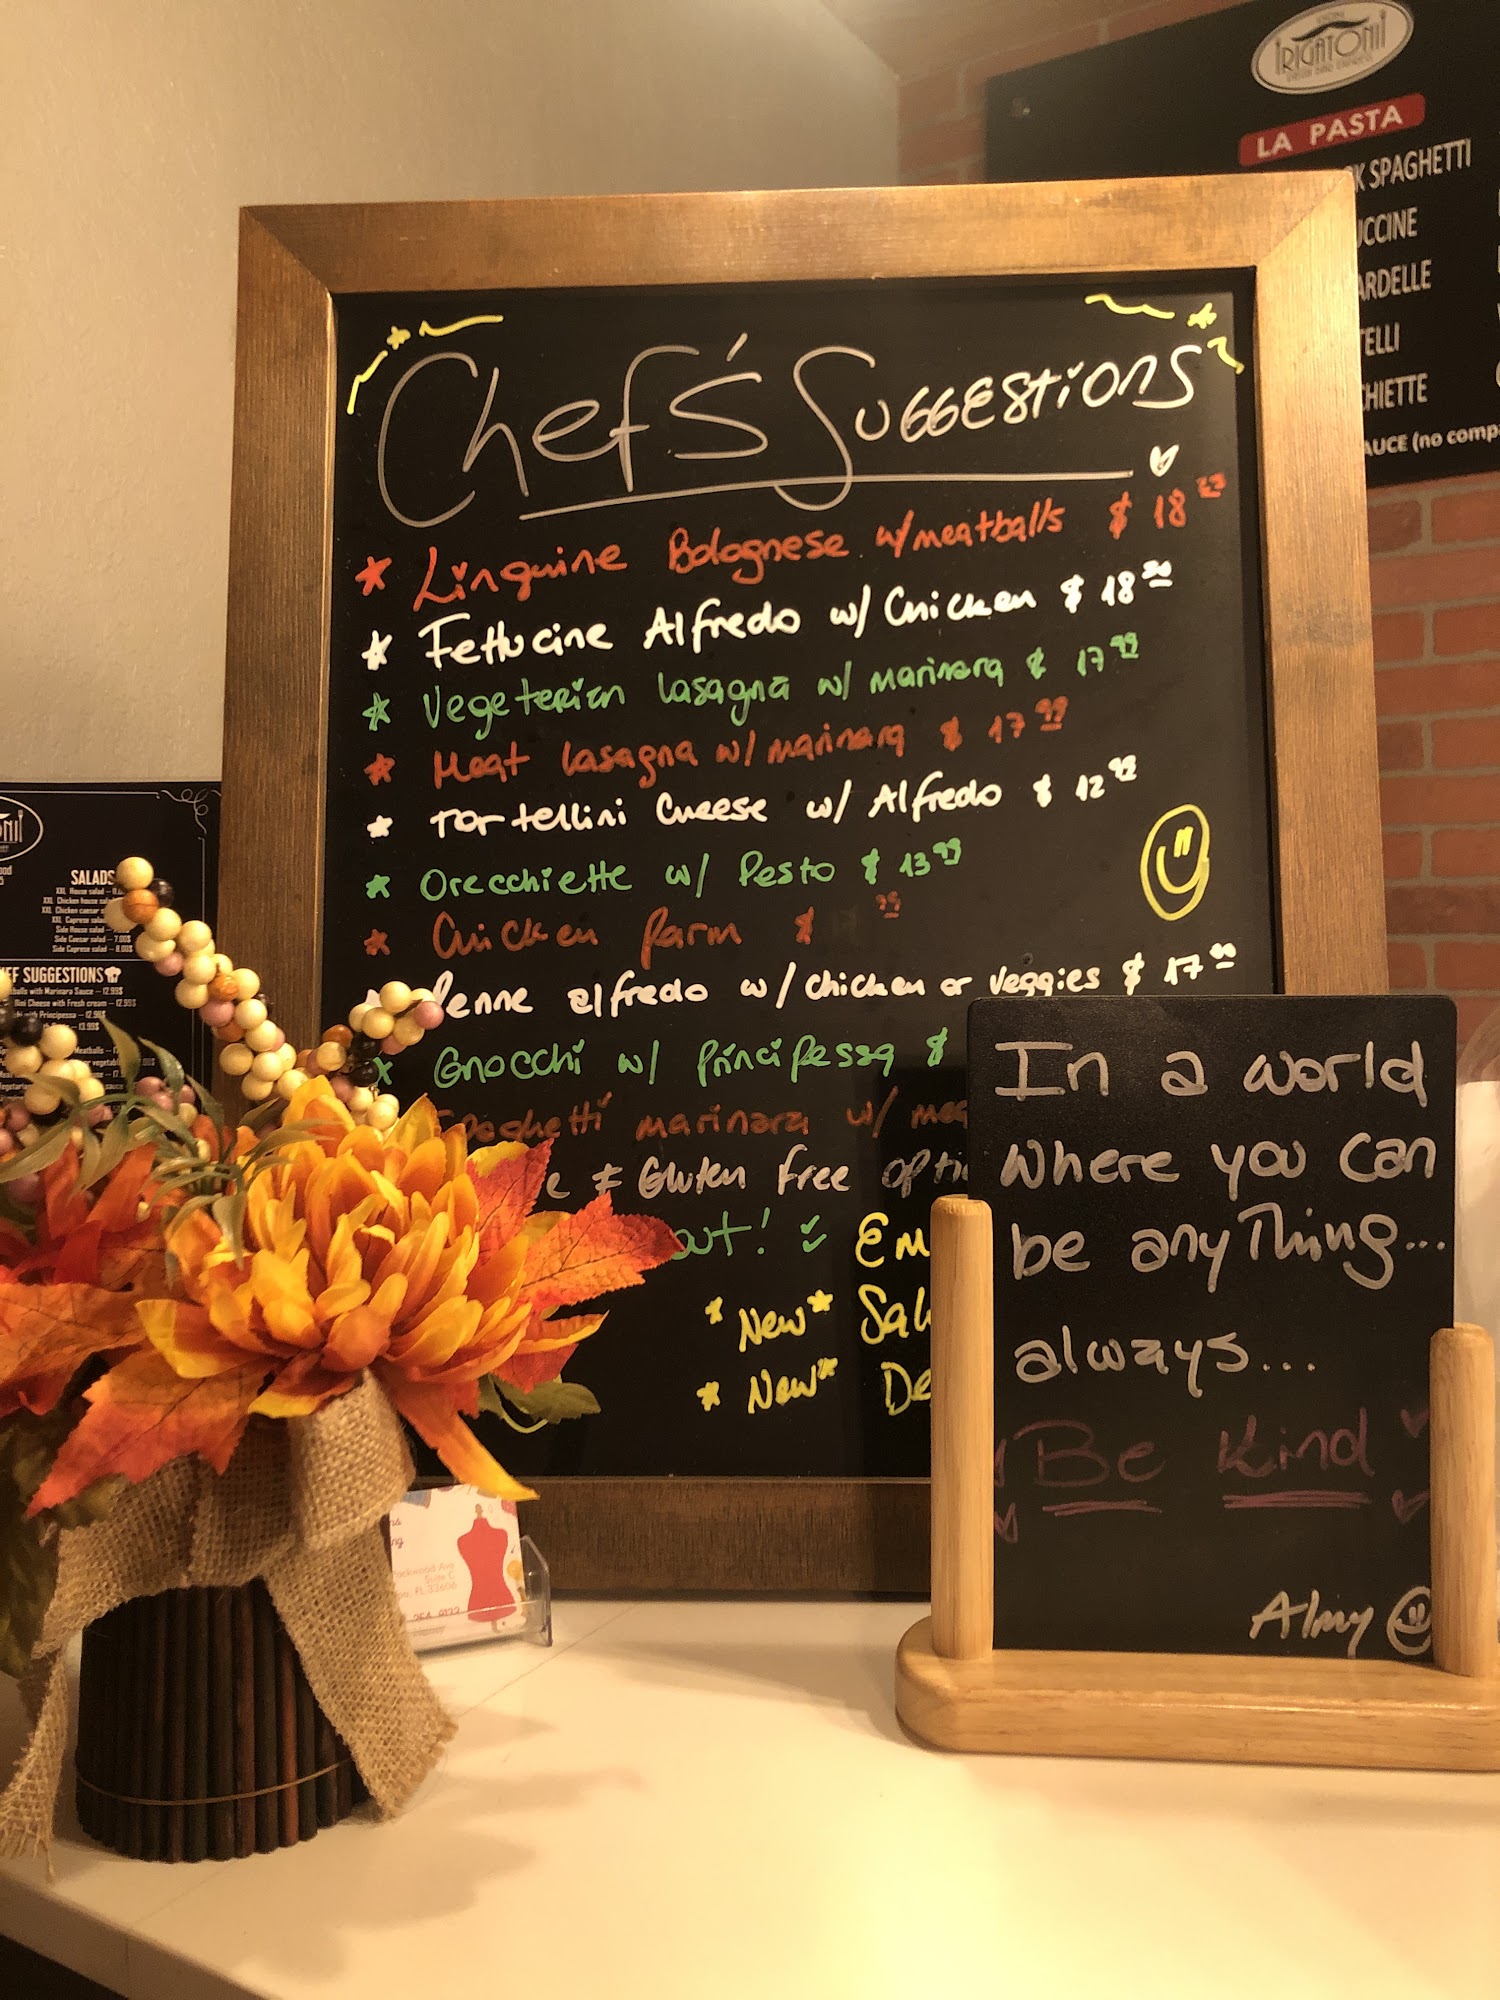 Chef's Suggestions
* Linguine Bolognese w/meatballs $ 18
* Fettucine Alfredo w/ Chicken $ 18
* Vegeterian lasagna w/ marinara $ 17 99
* Meat lasagna w/ marinara $ 17 99
* Tortellini Cheese w/ Alfredo $ 12 99
* Orecchiette w/ Pesto $ 13 99
* Chicken Parm $ 99
Penne alfredo w/ chicken or veggies $ 17 99
Gnocchi w/ Principessa $
Spaghetti marinara w/
Gluten Free
out!
*New*
*New*
In a world
where you can
be anything...
always...
Be Kind
Almy
RIGATONI
LA PASTA
SPAGHETTI
UCCINE
ARDELLE
TELLI
CHIETTE
AUCE (no comp
SALADS
XXL House salad
XXL Chicken house
XXL Chicken caesar
XXL Caprese
Side House salad
Side Caesar salad — 7.00$
Side Caprese salad — 8.00$
EF SUGGESTIONS
balls with Marinara Sauce — 12.99$
ini Cheese with Fresh cream — 12.99$
with Principessa — 12.99$
13.99$
Meatballs
Rockwood Ave
Suite C
FL 33606